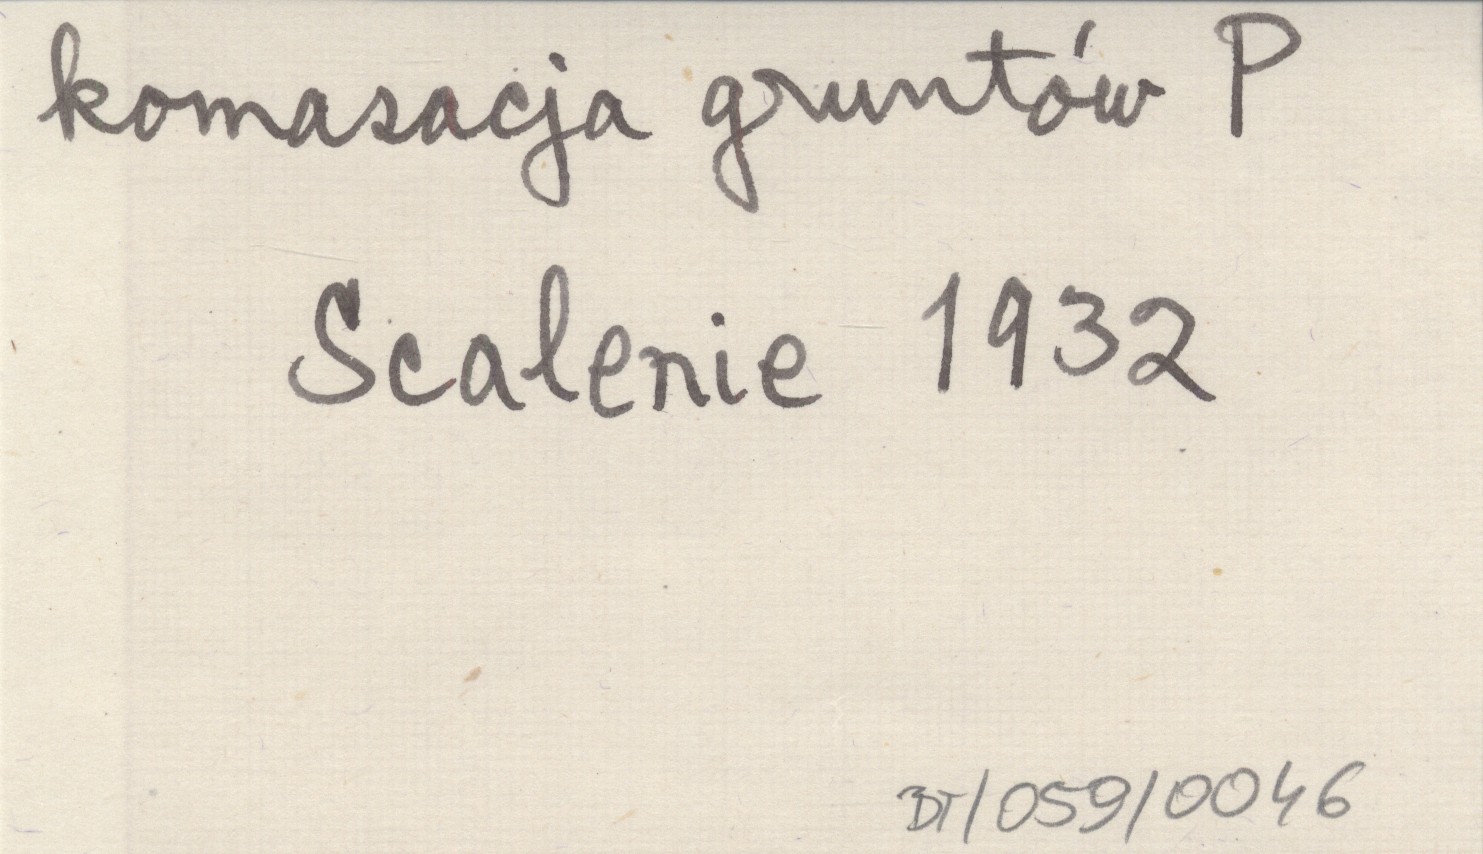 komasacja gruntów P
Scalenie 1932
BT/059/0046